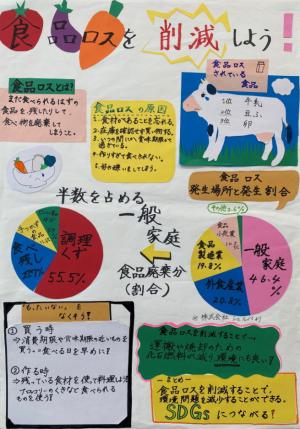 食品ロスを削減しよう!
食品ロスとは?
まだ食べられるはずの
食品を残したりして、
食べ物を廃棄して
しまうこと。
食品ロスの原因
1.食材があることを忘れる。
2.在庫を確認せず買い物する。
4.作りすぎて食べきれない。
5.好き嫌いをしてしまう。
食品ロス
されている
食品
1位 牛乳
2位 豆ふ
3位 卵
食品ロス
発生場所と発生割合
半数を占める
一般
家庭
食品廃棄分
(割合)
調理
くず
55.5%
食べ
残し
その他2.6%
食品
小売業
食品
製造業
19.8%
外食産業
20.8%
一般
家庭
46.4
%
もったいないを
なくそう!
①買う時
⇒消費期限や賞味期限の近いものを
買う。=食べる日を早めに!
②作る時
⇒残っている食材を使って料理しよう!
ブロッコリーのくきなど食べられる
ものを使う!
食品ロスを削減することで…
運搬や焼却のための
化石燃料の減り環境にも良い!
ーまとめー
食品ロスを削減することで、
環境問題を減少することができる。
SDGsにつながる?